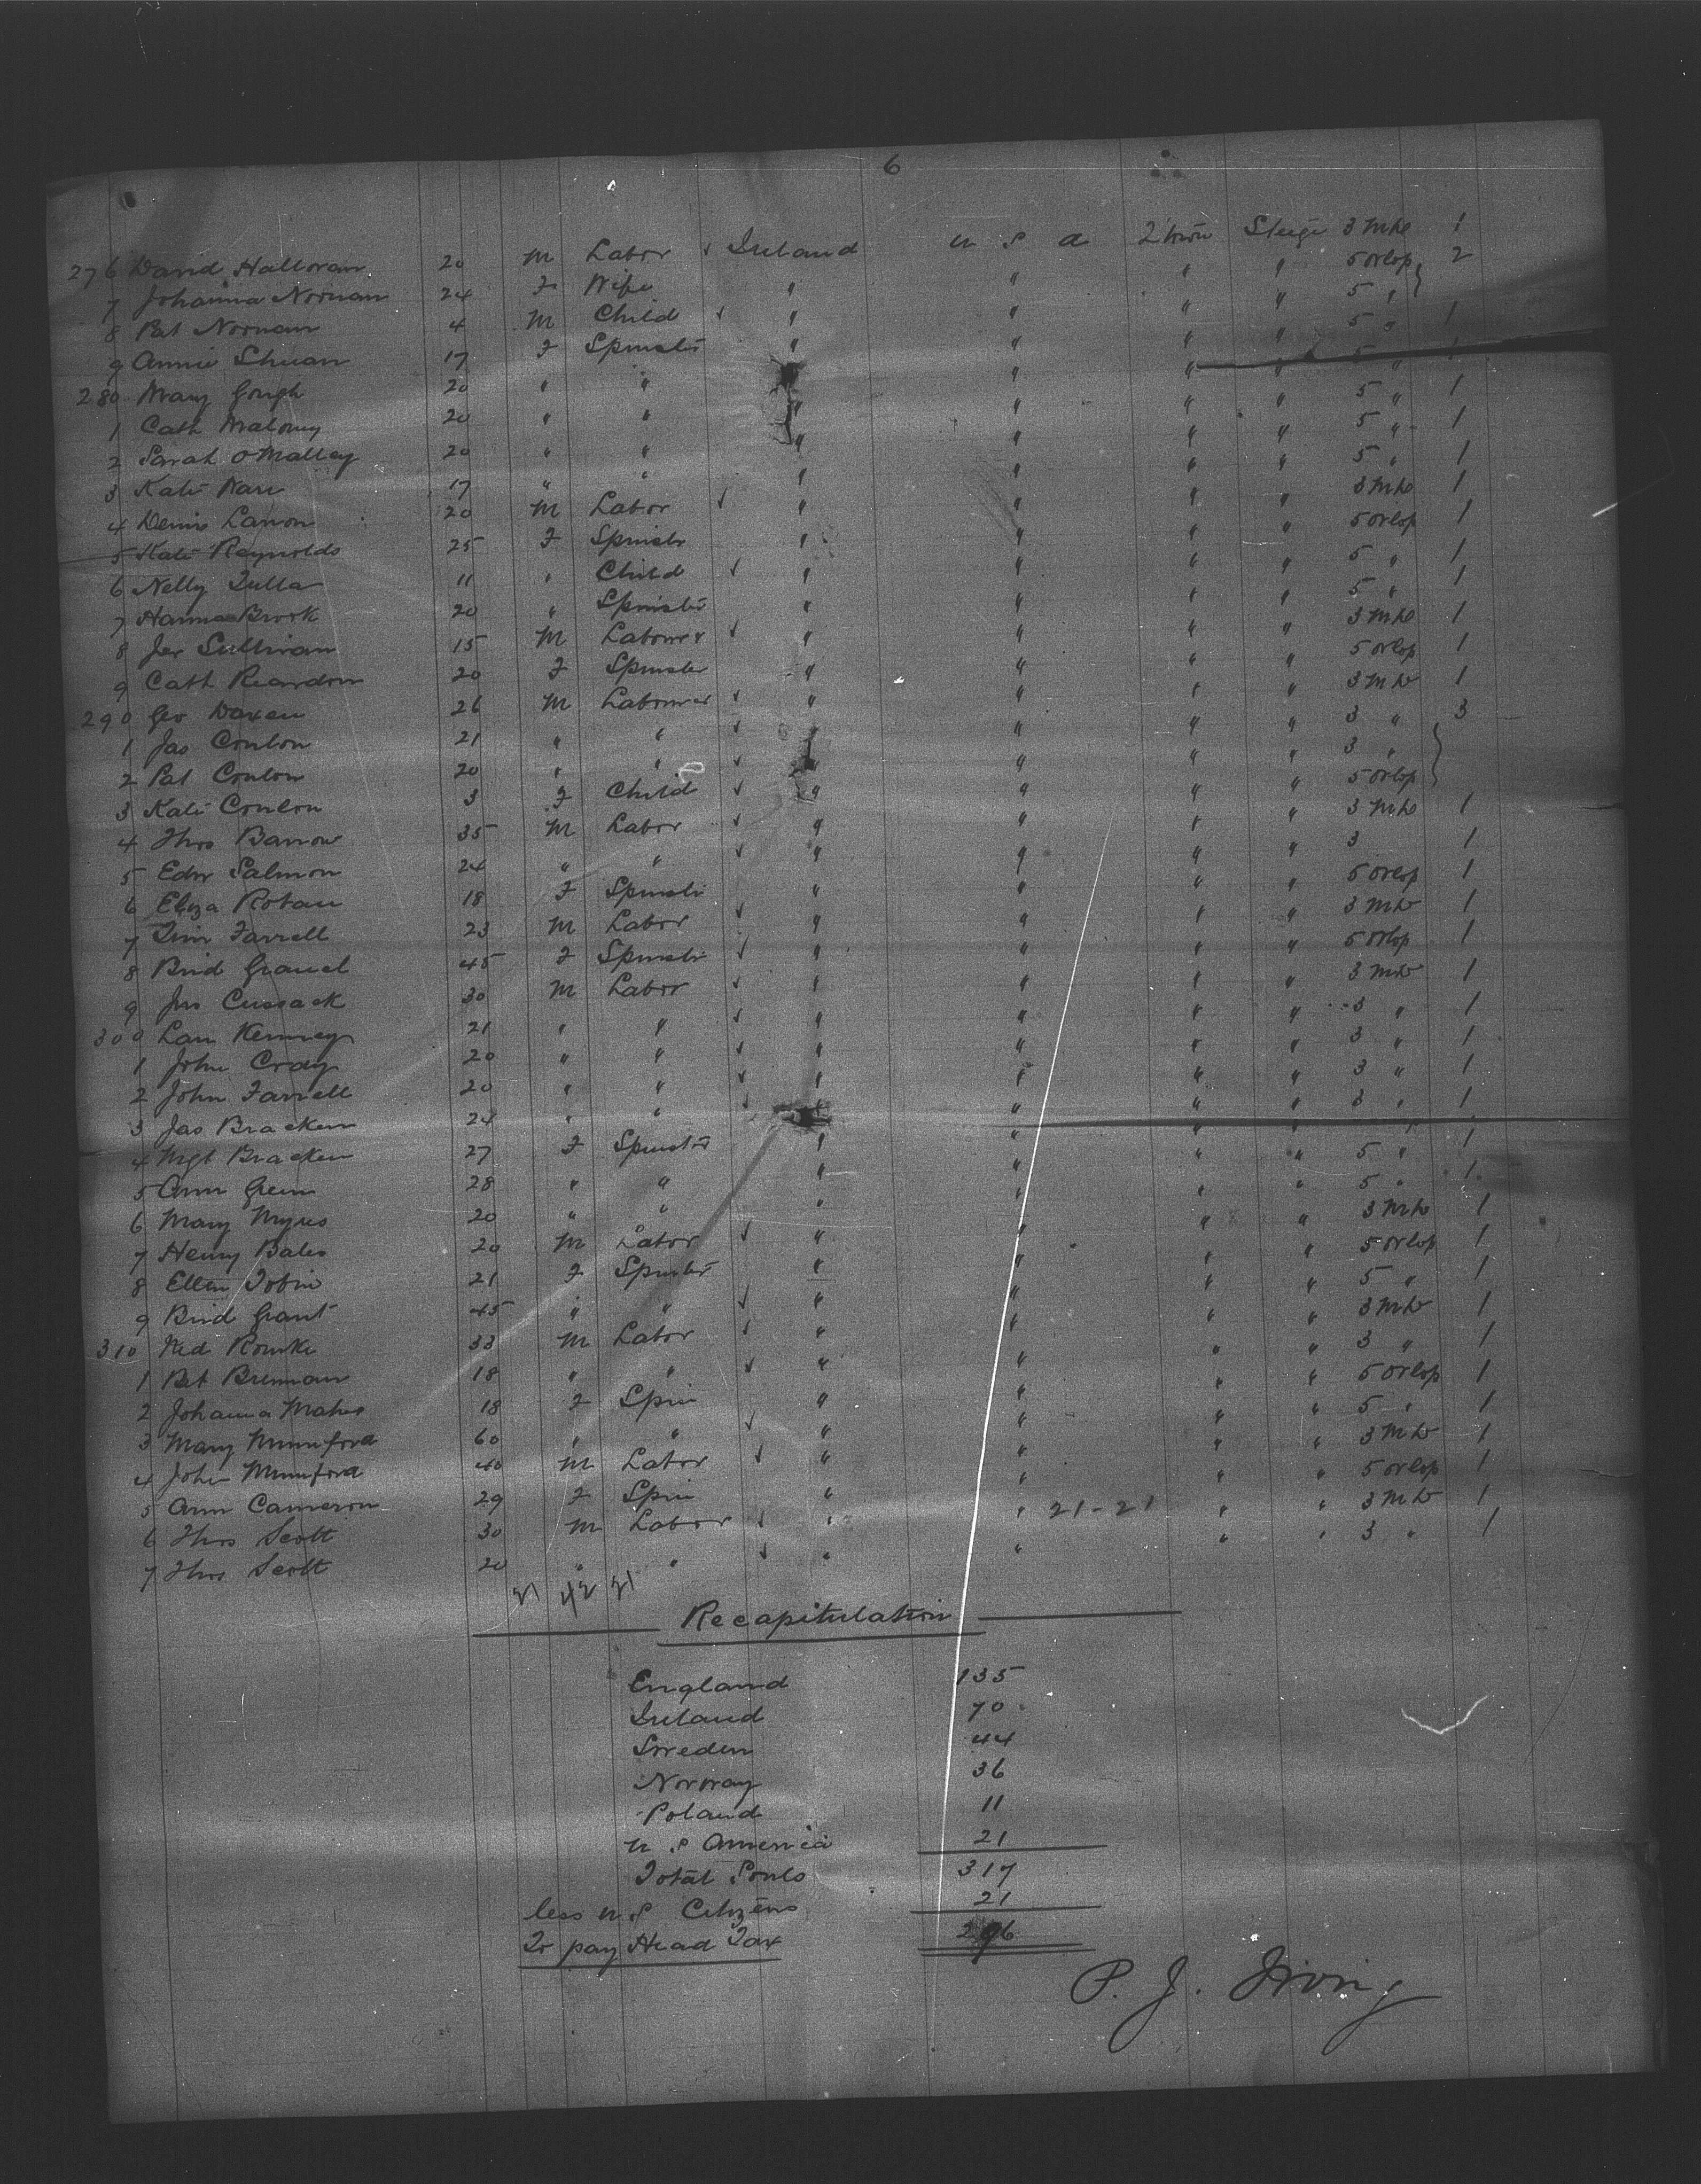 6
276 David Halloran 20 M Labor Ireland U S A 2 town Steege 3 Mke 1
7 Johanna Noonan 24 F Wife " " " " 5 Orlop 2
8 Pat Noonan 4 M Child " " " " 5 "
9 Annie 17 F Spinster " " " " 5 " 1
280 Mary Gough 20 " " " " " " 5 " 1
1 Cath Maloney 20 " " " " " " 5 " 1
2 Sarah O Malley 20 " " " " " " 5 " 1
3 Kate 17 " " " " " " 5 " 1
4 Denis 20 M Labor " " " " 3 1
5 Kate Reynolds 25 F Spinstr " " " " 5 Orlop 1
6 Nelly 11 " Child " " " " 5 " 1
7 Hanna Brook 20 " Spinster " " " " 5 " 1
8 Jer Sullivan 15 M Labourer " " " " 3 1
9 Cath Reardon 20 F Spinster " " " " 5 Orlop 1
290 Geo 26 M Labourer " " " " 3 1
1 Jas Conlon 21 " " " " " " 3 " 3
2 Pat Conlon 20 " " " " " " 3 "
3 Kate Conlon 3 F Child " " " " 5 Orlop
4 Thos Barrow 35 M Labor " " " " 3 1
5 Edw Salmon 24 " " " " " " 3 1
6 Eliza 18 F Spinstr " " " " 5 Orlop 1
7 Tim Farrell 23 M Labor " " " " 3 1
8 Brid 45 F Spinstr " " " " 5 Orlop 1
9 Jas Cussack 30 M Labor " " " " 3 1
300 Lau Kenney 21 " " " " " " 3 " 1
1 John 20 " " " " " " 3 " 1
2 John Farrell 20 " " " " " " 3 " 1
3 Jas Bracken 24 " " " " " " 3 " 1
4 Mgt Bracken 27 F Spinster " " " "
5 Ann Green 28 " " " " " " 5 " 1
6 Mary Myres 20 " " " " " " 5 " 1
7 Henry Bates 20 M Labor " " " " 3 1
8 Ellen Tobin 21 F Spinster " " " " 5 Orlop 1
9 Brid Grant 45 " " " " " " 5 " 1
310 Ned Rourke 33 M Labor " " " " 3 1
1 Pat Brennan 18 " " " " " " 3 " 1
2 Johanna Maher 18 F Spin " " " " 5 Orlop 1
3 Mary Mumford 60 " " " " " " 5 " 1
4 John Mumford 40 M Labor " " " " 3 1
5 Ann Cameron 29 F Spin " " " " 5 Orlop 1
6 Thos Scott 30 M Labor " " 21-21 " " 3 1
7 Thos Scott 20 " " " " " " 3 " 1
21 42 21
Recapitulation
England 135
Ireland 70
Sweden 44
Norway 36
Poland 11
U S America 21
Total Souls 317
less U S Citizens 21
To pay Head Tax 296
P. J. Irving